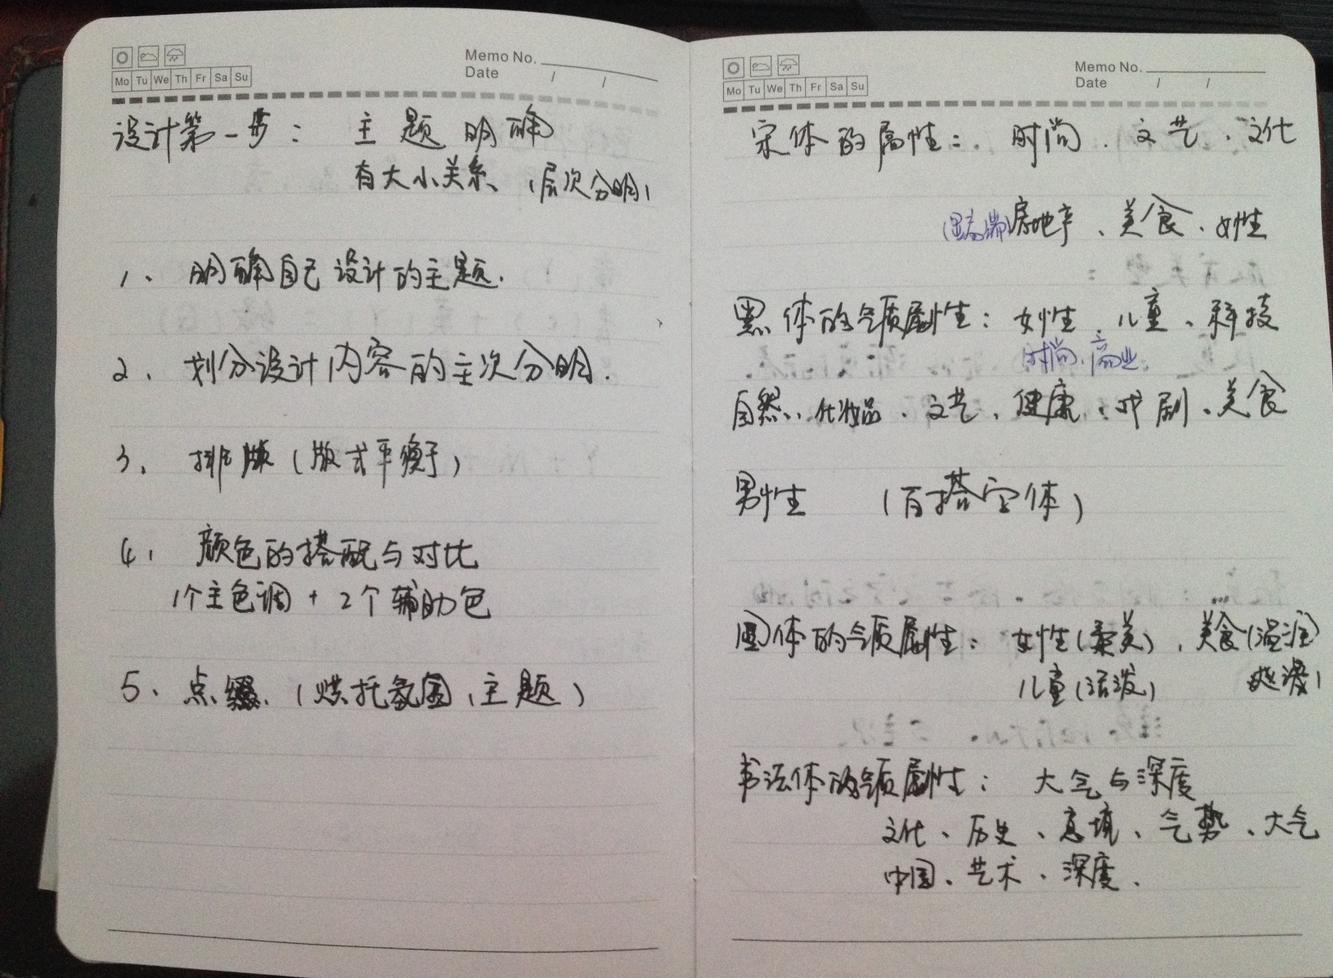 Memo No.
Date / /
Mo Tu We Th Fr Sa Su
设计第一步： 主题明确
有大小关系、（层次分明）
1、 明确自己设计的主题.
2、 划分设计内容的主次分明.
3、 排版（版式平衡）
4、 颜色的搭配与对比
1个主色调 + 2个辅助色
5、点缀.（烘托氛围、主题）
Memo No.
Date / /
Mo Tu We Th Fr Sa Su
宋体的属性： 时尚、文艺、文化
房地产、美食、女性
黑体的气质属性： 女性、儿童、科技
时尚、商业.
自然、化妆品、文艺、健康、戏剧、美食
男性 （百搭字体）
圆体的气质属性： 女性（柔美）、美食（湿润
儿童（活泼）
书法体的气质属性： 大气与深度
文化、历史、意境、气势、大气
中国、艺术、深度.